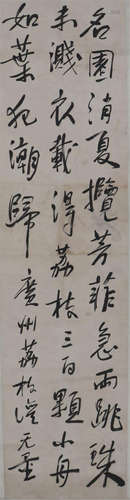 名園消夏攬芳菲急雨跳珠
未濺衣載得荔枝三百顆小舟
如葉犯潮歸 廣州荔枝灣